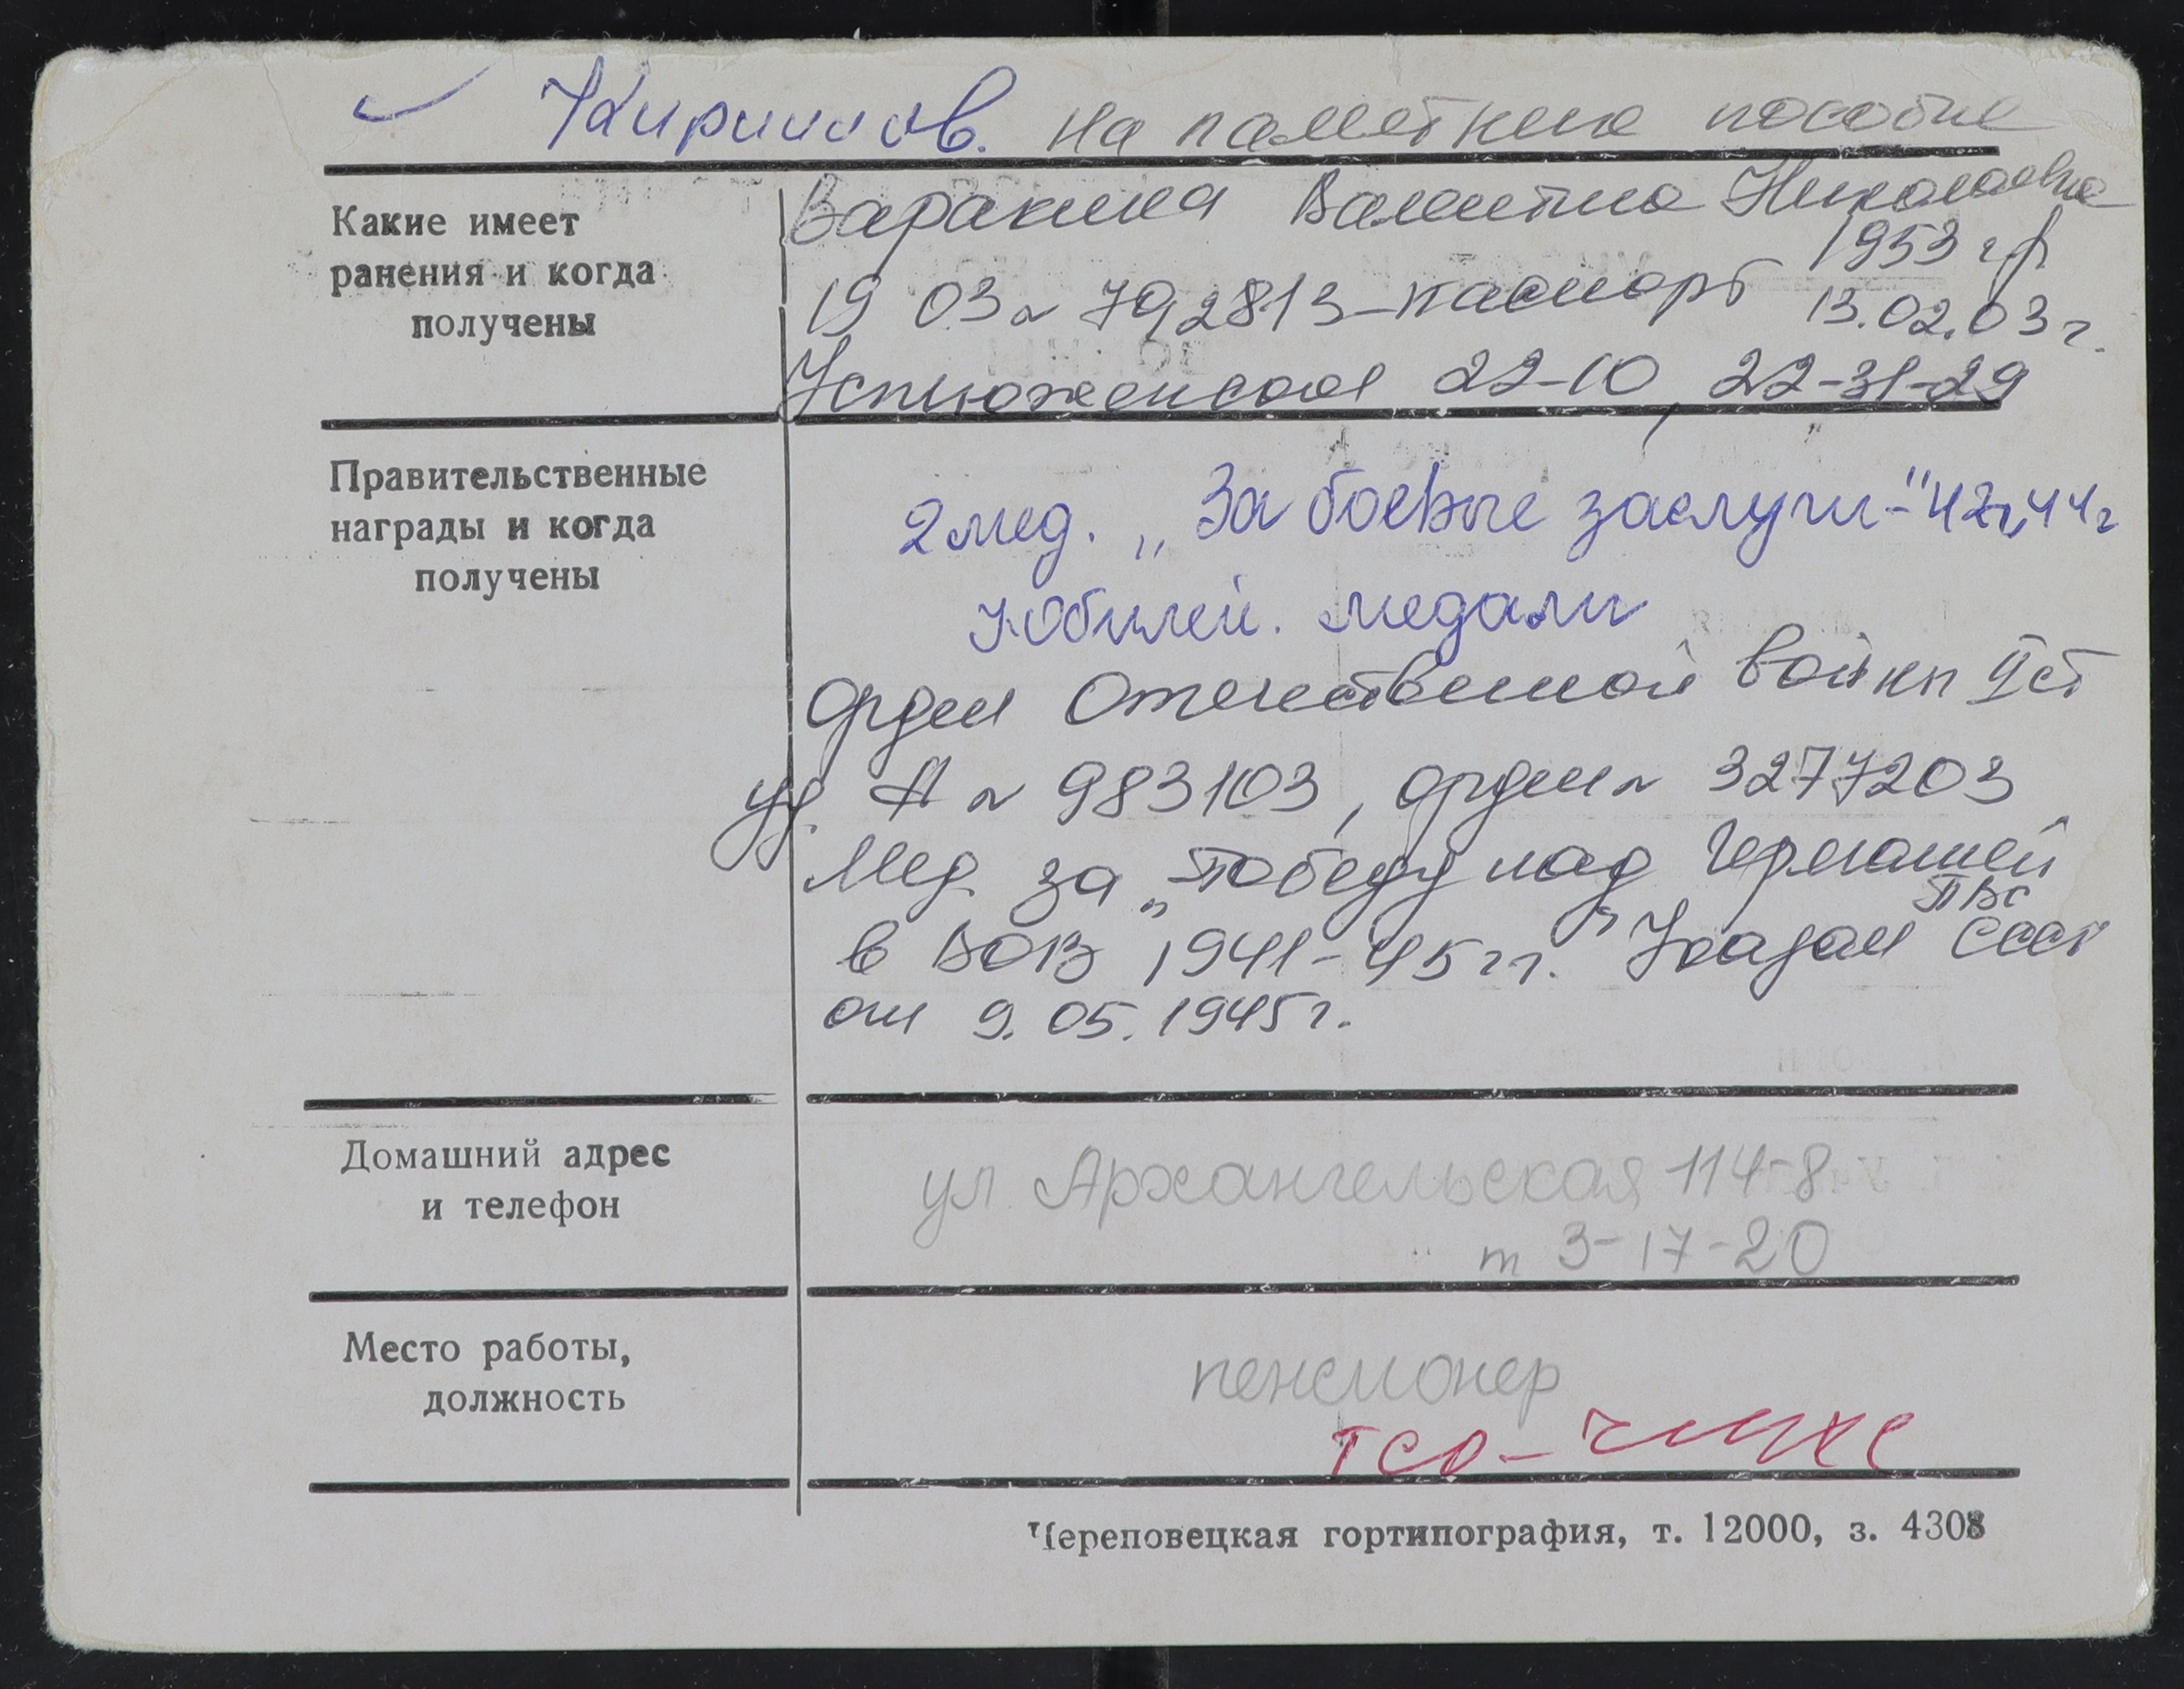 ✓ Кириллов. на памятник пособие
Какие имеет
ранения и когда
получены
Варакина Валентина Николаевна
1953 г.р.
19 03 № 792813 – паспорт 13.02.03 г.
Устюженская 22-10, 22-31-29
Правительственные
награды и когда
получены
2 мед. „За боевые заслуги" – 42 г, 44 г
Юбилей. медали
Орден Отечественной войны II ст
уд. А № 983103, орден № 3277203
Мед. за „Победу над Германией
в ВОВ 1941-45 гг." Указам ПВС СССР
от 9.05.1945 г.
Домашний адрес
и телефон
ул. Архангельская 114-8
т 3-17-20
Место работы,
должность
пенсионер
ТСО –
Череповецкая гортипография, т. 12000, з. 4308